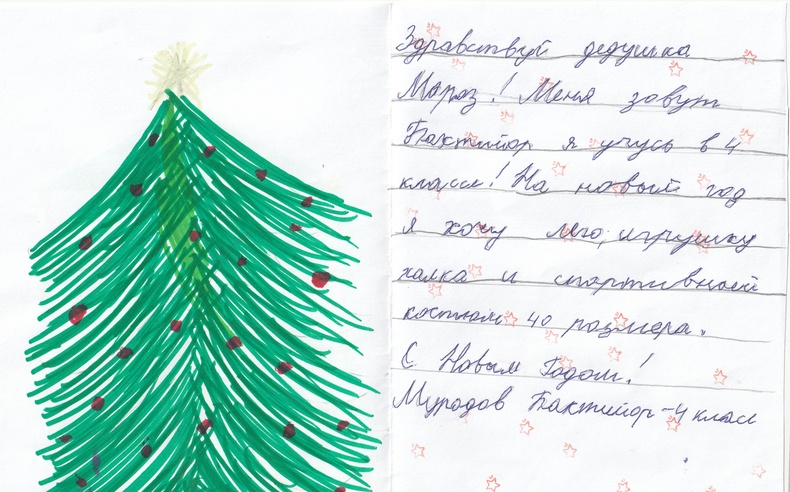 Здравствуй дедушка
Мароз! Меня зовут
Бактийор я учусь в 4
классе! На новый год
я хочу лего, игрушку
халка и спортивный
костюм 40 размера.
С Новым Годом!
Муродов Бактийор-4 класс